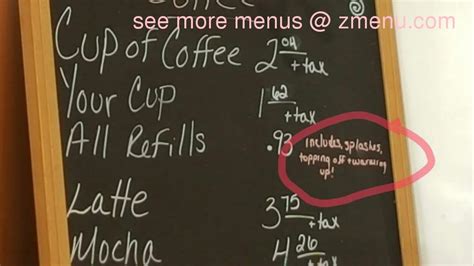 Coffee
see more menus @ zmenu.com
Cup of Coffee 2 04 + tax
Your Cup 1 62 + tax
All Refills .93 includes, splashes,
topping off + warming
up!
Latte 3 75 + tax
Mocha 4 26 + tax